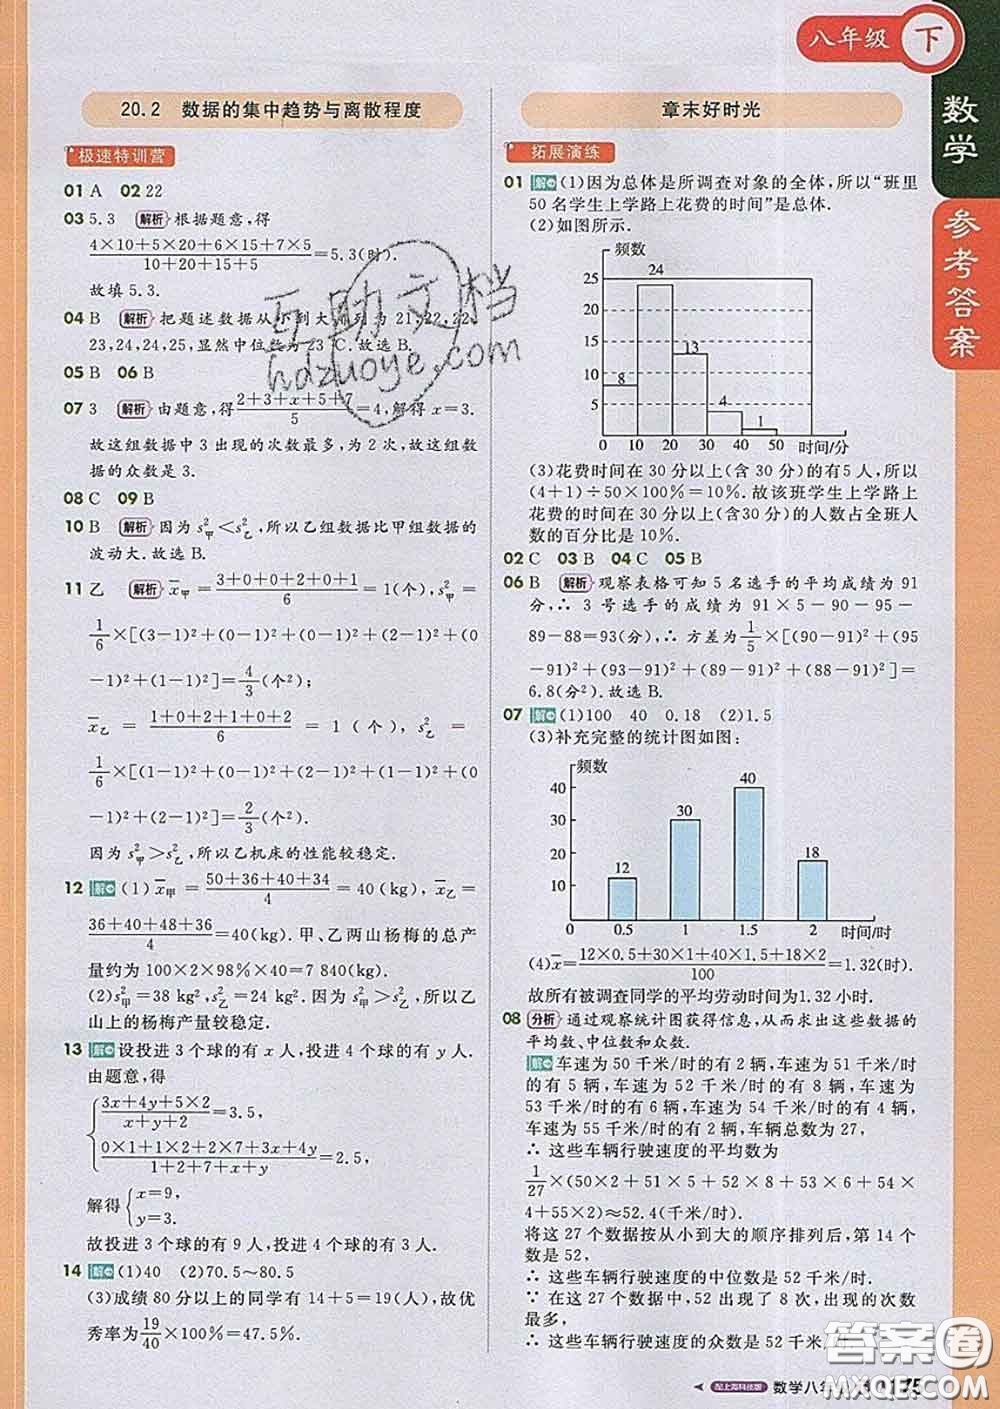 八年级 下
数学
参考答案
20.2 数据的集中趋势与离散程度
极速特训营
01 A 02 22
03 5.3 解析 根据题意,得
(4×10+5×20+6×15+7×5)/(10+20+15+5)=5.3(时).
故填 5.3.
04 B 解析 把题述数据从小到大排列为 21,22,22,
23,24,24,25,显然中位数为 23 ℃.故选 B.
05 B 06 B
07 3 解析 由题意,得(2+3+x+5+7)/5=4,解得 x=3.
故这组数据中 3 出现的次数最多,为 2 次,故这组数
据的众数是 3.
08 C 09 B
10 B 解析 因为 s²甲<s²乙,所以乙组数据比甲组数据的
波动大.故选 B.
11 乙 解析 x̄甲=(3+0+0+2+0+1)/6=1(个),s²甲=
1/6×[(3-1)²+(0-1)²+(0-1)²+(2-1)²+(0
-1)²+(1-1)²]=4/3(个²);
x̄乙=(1+0+2+1+0+2)/6=1(个),s²乙=
1/6×[(1-1)²+(0-1)²+(2-1)²+(1-1)²+(0-
1)²+(2-1)²]=2/3(个²).
因为 s²甲>s²乙,所以乙机床的性能较稳定.
12 解 (1)x̄甲=(50+36+40+34)/4=40(kg),x̄乙=
(36+40+48+36)/4=40(kg).甲、乙两山杨梅的总产
量约为 100×2×98%×40=7 840(kg).
(2)s²甲=38 kg²,s²乙=24 kg².因为 s²甲>s²乙,所以乙
山上的杨梅产量较稳定.
13 解 设投进 3 个球的有 x 人,投进 4 个球的有 y 人.
由题意,得
{(3x+4y+5×2)/(x+y+2)=3.5,
(0×1+1×2+2×7+3x+4y)/(1+2+7+x+y)=2.5,
解得{x=9,
y=3.
故投进 3 个球的有 9 人,投进 4 个球的有 3 人.
14 解 (1)40 (2)70.5~80.5
(3)成绩 80 分以上的同学有 14+5=19(人),故优
秀率为19/40×100%=47.5%.
章末好时光
拓展演练
01 解 (1)因为总体是所调查对象的全体,所以“班里
50 名学生上学路上花费的时间”是总体.
(2)如图所示.
频数
25
20
15
10
5
8
24
13
4
1
0 10 20 30 40 50 时间/分
(3)花费时间在 30 分以上(含 30 分)的有5 人,所以
(4+1)÷50×100%=10%.故该班学生上学路上
花费的时间在30分以上(含30分)的人数占全班人
数的百分比是 10%.
02 C 03 B 04 C 05 B
06 B 解析 观察表格可知 5 名选手的平均成绩为 91
分,∴ 3 号选手的成绩为 91×5-90-95-
89-88=93(分),∴ 方差为1/5×[(90-91)²+(95
-91)²+(93-91)²+(89-91)²+(88-91)²]=
6.8(分²).故选 B.
07 解 (1)100 40 0.18 (2)1.5
(3)补充完整的统计图如图:
频数
40
30
20
10
12
30
40
18
0 0.5 1 1.5 2 时间/时
(4)x̄=(12×0.5+30×1+40×1.5+18×2)/100=1.32(时).
故所有被调查同学的平均劳动时间为1.32 小时.
08 分析 通过观察统计图获得信息,从而求出这些数据的
平均数、中位数和众数.
解 车速为 50 千米/时的有 2 辆,车速为 51 千米/时
的有 5 辆,车速为 52 千米/时的有 8 辆,车速为
53 千米/时的有 6 辆,车速为 54 千米/时的有 4 辆,
车速为 55 千米/时的有 2 辆,车辆总数为 27,
∴ 这些车辆行驶速度的平均数为
1/27×(50×2+51×5+52×8+53×6+54×
4+55×2)≈52.4(千米/时).
将这 27 个数据按从小到大的顺序排列后,第 14 个
数是 52,
∴ 这些车辆行驶速度的中位数是 52 千米/时.
∵ 在这 27 个数据中,52 出现了 8 次,出现的次数
最多,
∴ 这些车辆行驶速度的众数是 52 千米/
配上海科技版 数学八年
互助文档
hdzuoye.com
答案圈